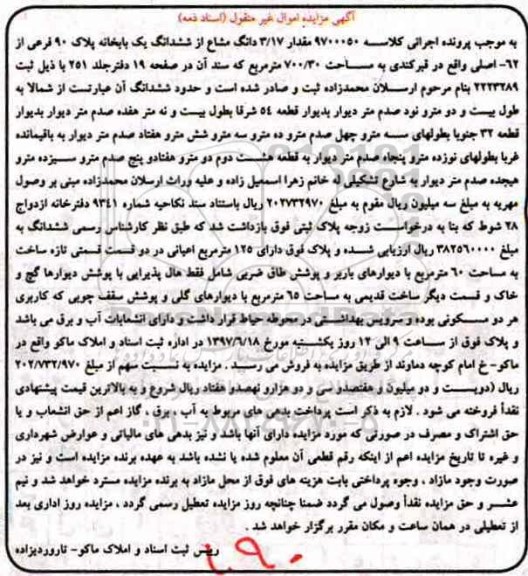 آگهی مزایده اموال غیر منقول (اسناد ذمه)
به موجب پرونده اجرائی کلاسه ۹۷۰۰۰۵۰ مقدار ۳/۱۷ دانگ مشاع از ششدانگ یک بابخانه پلاک ۹۰ فرعی از
۶۲- اصلی واقع در قیرکندی به مساحت ۷۰۰/۳۰ مترمربع که سند آن در صفحه ۱۹ دفترجلد ۲۵۱ با ذیل ثبت
۲۲۲۳۲۸۹ بنام مرحوم ارسلان محمدزاده ثبت و صادر شده است و حدود ششدانگ آن عبارتست از شمالا به
طول بیست و دو مترو نود صدم متر دیوار بدیوار قطعه ۵۴ شرقا بطول بیست و نه متر هفده صدم متر دیوار بدیوار
قطعه ۳۲ جنوبا بطولهای سه مترو چهل صدم مترو ده مترو سه مترو شش مترو هفتاد صدم متر دیوار به باقیمانده
غربا بطولهای نوزده مترو پنجاه صدم متر دیوار به قطعه هشت دوم دو مترو هفتادو پنج صدم مترو سیزده مترو
هیجده صدم متر دیوار به شارع تشکیلی له خانم زهرا اسمعیل زاده و علیه وراث ارسلان محمدزاده مبنی بر وصول
مهریه به مبلغ سه میلیون ریال مقوم به مبلغ ۲۰۲۷۳۲۹۷۰ ریال باستناد سند نکاحیه شماره ۹۳۴۱ دفترخانه ازدواج
۲۸ شوط که بنا به درخواست زوجه پلاک ثبتی فوق بازداشت شد که طبق نظر کارشناس رسمی ششدانگ به
مبلغ ۳۸۲۵۶۰۰۰۰ ریال ارزیابی شده و پلاک فوق دارای ۱۲۵ مترمربع اعیانی در دو قسمت قسمتی تازه ساخت
به مساحت ۶۰ مترمربع با دیوارهای باربر و پوشش طاق ضربی شامل فقط هال پذیرایی با پوشش دیوارها گچ و
خاک و قسمت دیگر ساخت قدیمی به مساحت ۶۵ مترمربع با دیوارهای گلی و پوشش سقف چوبی که کاربری
هر دو مسکونی بوده و سرویس بهداشتی در محوطه حیاط قرار داشت و دارای انشعابات آب و برق می باشد
و پلاک فوق از ساعت ۹ الی ۱۲ روز یکشنبه مورخ ۱۳۹۷/۶/۱۸ در اداره ثبت اسناد و املاک ماکو واقع در
ماکو- خ امام کوچه دماوند از طریق مزایده به فروش می رسد . مزایده به نسبت سهم از مبلغ ۲۰۲/۷۳۲/۹۷۰
ریال (دویست و دو میلیون و هفتصدو سی و دو هزارو نهصدو هفتاد ریال شروع و به بالاترین قیمت پیشنهادی
نقداً فروخته می شود . لازم به ذکر است پرداخت بدهی های مربوط به آب ، برق ، گاز اعم از حق انشعاب و یا
حق اشتراک و مصرف در صورتی که مورد مزایده دارای آنها باشد و نیز بدهی های مالیاتی و عوارض شهرداری
و غیره تا تاریخ مزایده اعم از اینکه رقم قطعی آن معلوم شده یا نشده باشد به عهده برنده مزایده است و نیز در
صورت وجود مازاد ، وجوه پرداختی بابت هزینه های فوق از محل مازاد به برنده مزایده مسترد خواهد شد و نیم
عشر و حق مزایده نقداً وصول می گردد ضمنا چنانچه روز مزایده تعطیل رسمی گردد ، مزایده روز اداری بعد
از تعطیلی در همان ساعت و مکان مقرر برگزار خواهد شد .
رییس ثبت اسناد و املاک ماکو- تاروردیزاده